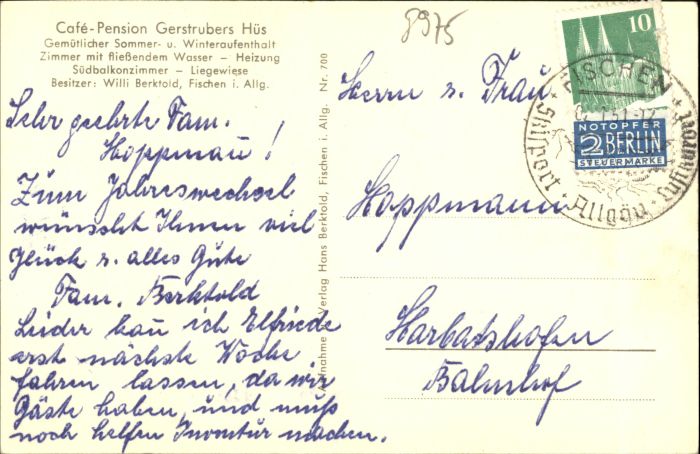 Café-Pension Gerstrubers Hüs
Gemütlicher Sommer- u. Winteraufenthalt
Zimmer mit fließendem Wasser – Heizung
Südbalkonzimmer – Liegewiese
Besitzer: Willi Berktold, Fischen i. Allg.
Sehr geehrte Fam.
Hoppmann!
Zum Jahreswechsel
wünscht Ihnen viel
Glück u. alles Gute
Fam. Berktold
Leider kan ich Elfriede
erst nächste Woche
fahren lassen, da wir
Gäste haben, und muß
noch helfen Inventur machen.
Verlag Hans Berktold, Fischen i. Allg. Nr. 700
8975
Herrn u. Frau
Hoppmann
Harbatshofen
Bahnhof
10
FISCHEN
Skisport · Allgäu
NOTOPFER
2 BERLIN
STEUERMARKE